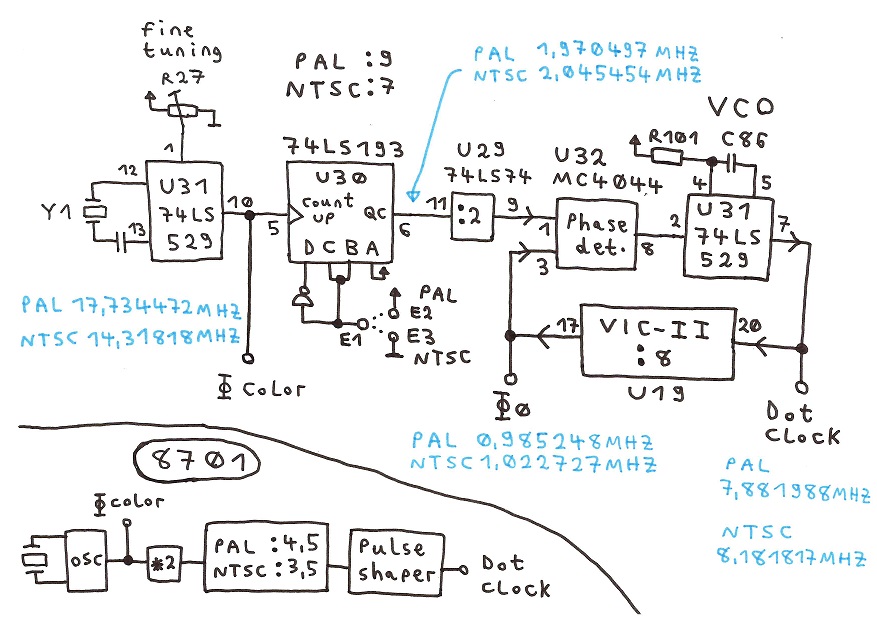 fine
tuning
R27
PAL :9
NTSC:7
PAL 1,970497MHZ
NTSC 2,045454MHZ
VCO
74LS193
U29
74LS74
U32
MC4044
R101
C86
1
12
U31
74LS
529
10
Y1
13
5
U30
count
up
QC
D C B A
6
11
:2
9
1
Phase
det.
3
8
2
4
5
U31
74LS
529
7
PAL
E2
E1
E3
NTSC
17
VIC-II
:8
20
U19
PAL 17,734472MHZ
NTSC 14,31818MHZ
Φ Color
Φ0
Dot
CLOCK
PAL 0,985248MHZ
NTSC 1,022727MHZ
PAL
7,881988MHZ
NTSC
8,181817MHZ
8701
Φcolor
OSC
*2
PAL :4,5
NTSC :3,5
Pulse
shaper
Dot
CLOCK